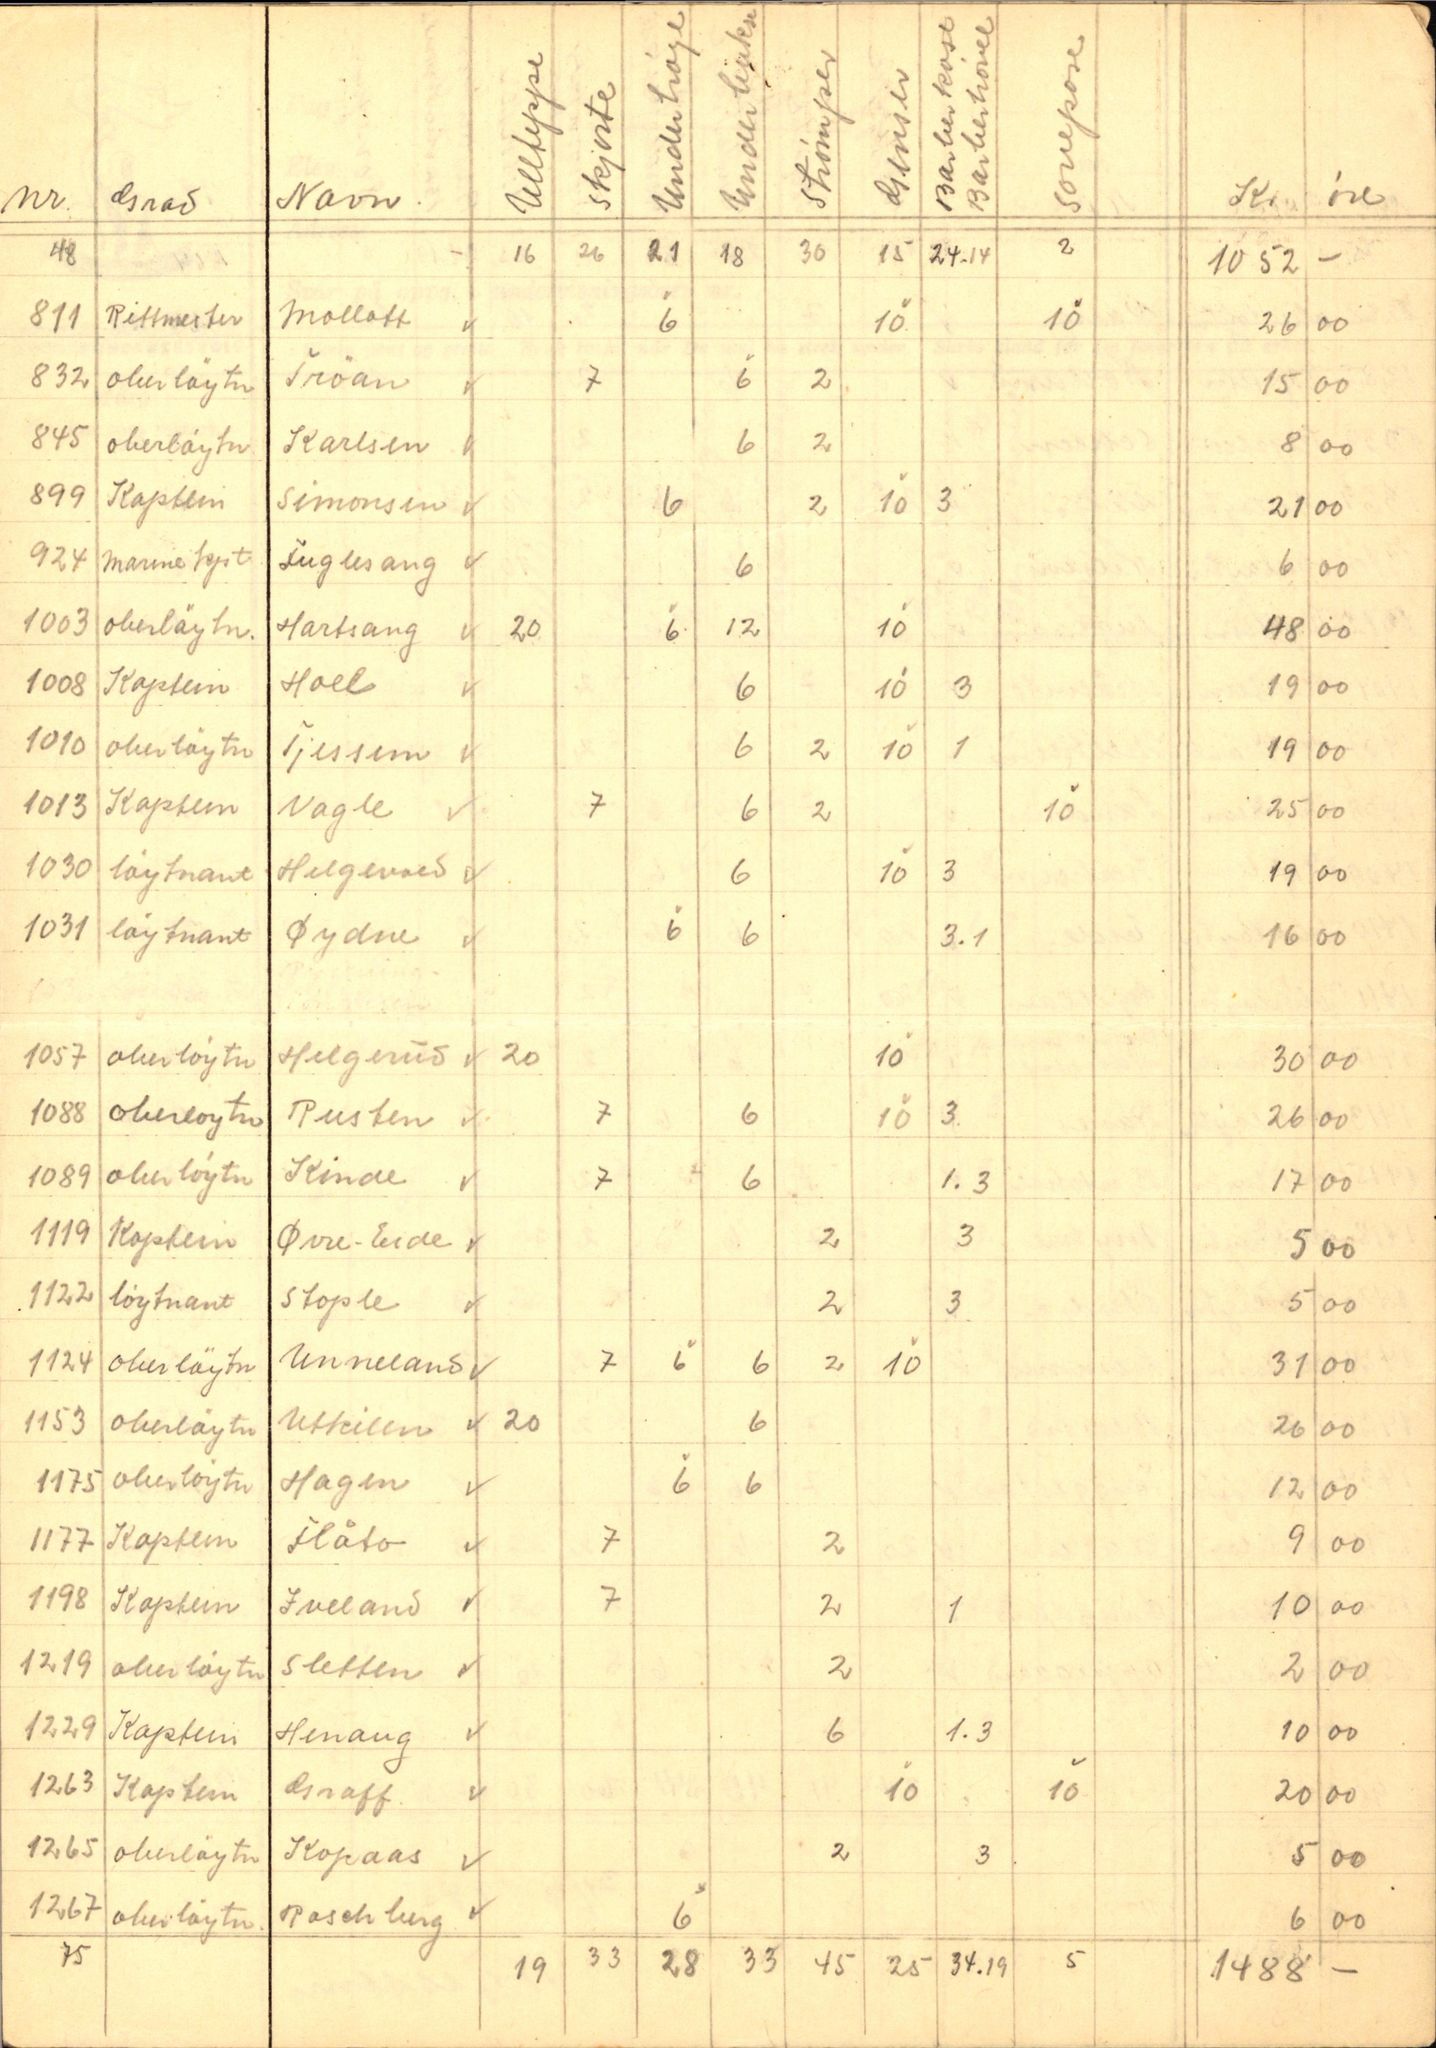 Nr. Grad Navn. Ullteppe Skjorte Undertröye Underbukse Strömper Genser Barberkost Barberhövel Sovepose Kr. öre
48 - 16 26 21 18 30 15 24.14 2 1052 -
811 Rittmester Mollatt ✓ 6 10 10 26 00
832 oberlöytn Tröan ✓ 7 6 2 15 00
845 oberlöytn Karlsen ✓ 6 2 8 00
899 Kaptein Simonsen ✓ 6 2 10 3 21 00
924 marine kpt Fuglesang ✓ 6 6 00
1003 oberlöytn. Hartsang ✓ 20 6 12 10 48 00
1008 Kaptein Hoel ✓ 6 10 3 19 00
1010 oberlöytn Tjessem ✓ 6 2 10 1 19 00
1013 Kaptein Vagle ✓ 7 6 2 10 25 00
1030 löytnant Helgevold ✓ 6 10 3 19 00
1031 löytnant Øydne ✓ 6 6 3.1 16 00
1057 oberlöytn Helgerud ✓ 20 10 30 00
1088 oberloytn Rusten ✓ 7 6 10 3 26 00
1089 oberlöytn Kinde ✓ 7 6 1.3 17 00
1119 Kaptein Øvre-Eide ✓ 2 3 5 00
1122 löytnant Stople ✓ 2 3 5 00
1124 oberlöytn Unneland ✓ 7 6 6 2 10 31 00
1153 oberlöytn Utkilen ✓ 20 6 26 00
1175 oberlöytn Hagen ✓ 6 6 12 00
1177 Kaptein Flåto ✓ 7 2 9 00
1198 Kaptein Iveland ✓ 7 2 1 10 00
1219 oberlöytn Sletten ✓ 2 2 00
1229 Kaptein Henaug ✓ 6 1.3 10 00
1263 Kaptein Graff ✓ 10 10 20 00
1265 oberlöytn Kopaas ✓ 2 3 5 00
1267 oberlöytn. Raschberg ✓ 6 6 00
75 19 33 28 33 45 25 34.19 5 1488 -